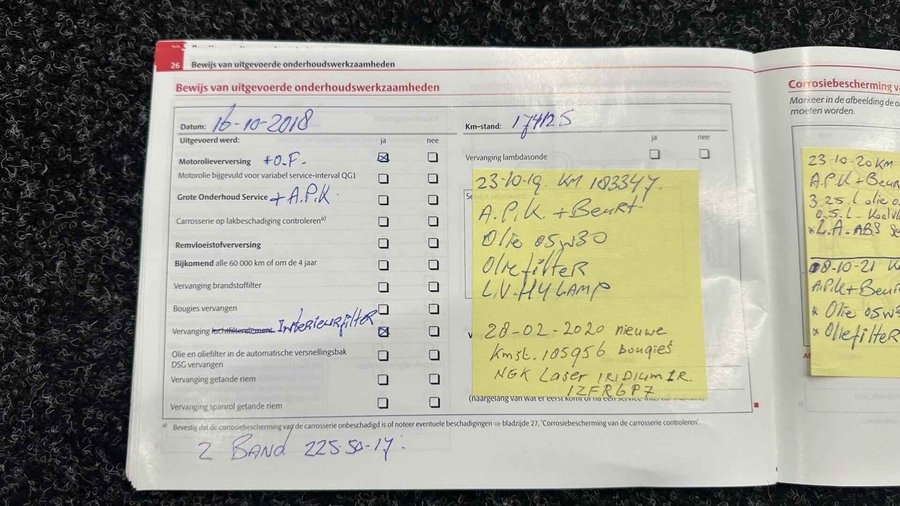 26 Bewijs van uitgevoerde onderhoudswerkzaamheden
Bewijs van uitgevoerde onderhoudswerkzaamheden
Datum: 16-10-2018
Km-stand: 174125
Uitgevoerd werd: ja nee
ja nee
Motorolieverversing + O.F.
Vervanging lambdasonde
Motorolie bijgevuld voor variabel service-interval QG1
Grote Onderhoud Service + A.P.K.
Carrosserie op lakbeschadiging controleren a)
Remvloeistofverversing
Bijkomend alle 60 000 km of om de 4 jaar
Vervanging brandstoffilter
Bougies vervangen
Vervanging luchtfilterelement Interieurfilter
Olie en oliefilter in de automatische versnellingsbak
DSG vervangen
Vervanging getande riem
Vervanging spanrol getande riem
23-10-19. KM 183347.
A.P.K + Beurt
Olie 05w30
Oliefilter
L.V. H4 Lamp
28-02-2020 nieuwe
Kmst. 185956 bougies
NGK Laser IRIDIUM IR.
IZFR6P7
a) Bevestig dat de corrosiebescherming van de carrosserie onbeschadigd is of noteer eventuele beschadigingen ⇒ bladzijde 27, 'Corrosiebescherming van de carrosserie controleren'.
2 BAND 225-50-17:
Corrosiebescherming
Markeer in de afbeelding de
moeten worden.
23-10-20 KM
A.P.K + Beurt
3.25.L olie
0.5.L - Koelv
* L.A - ABS
08-10-21 K
A.P.K + Beurt
* Olie 05w3
* Oliefilter